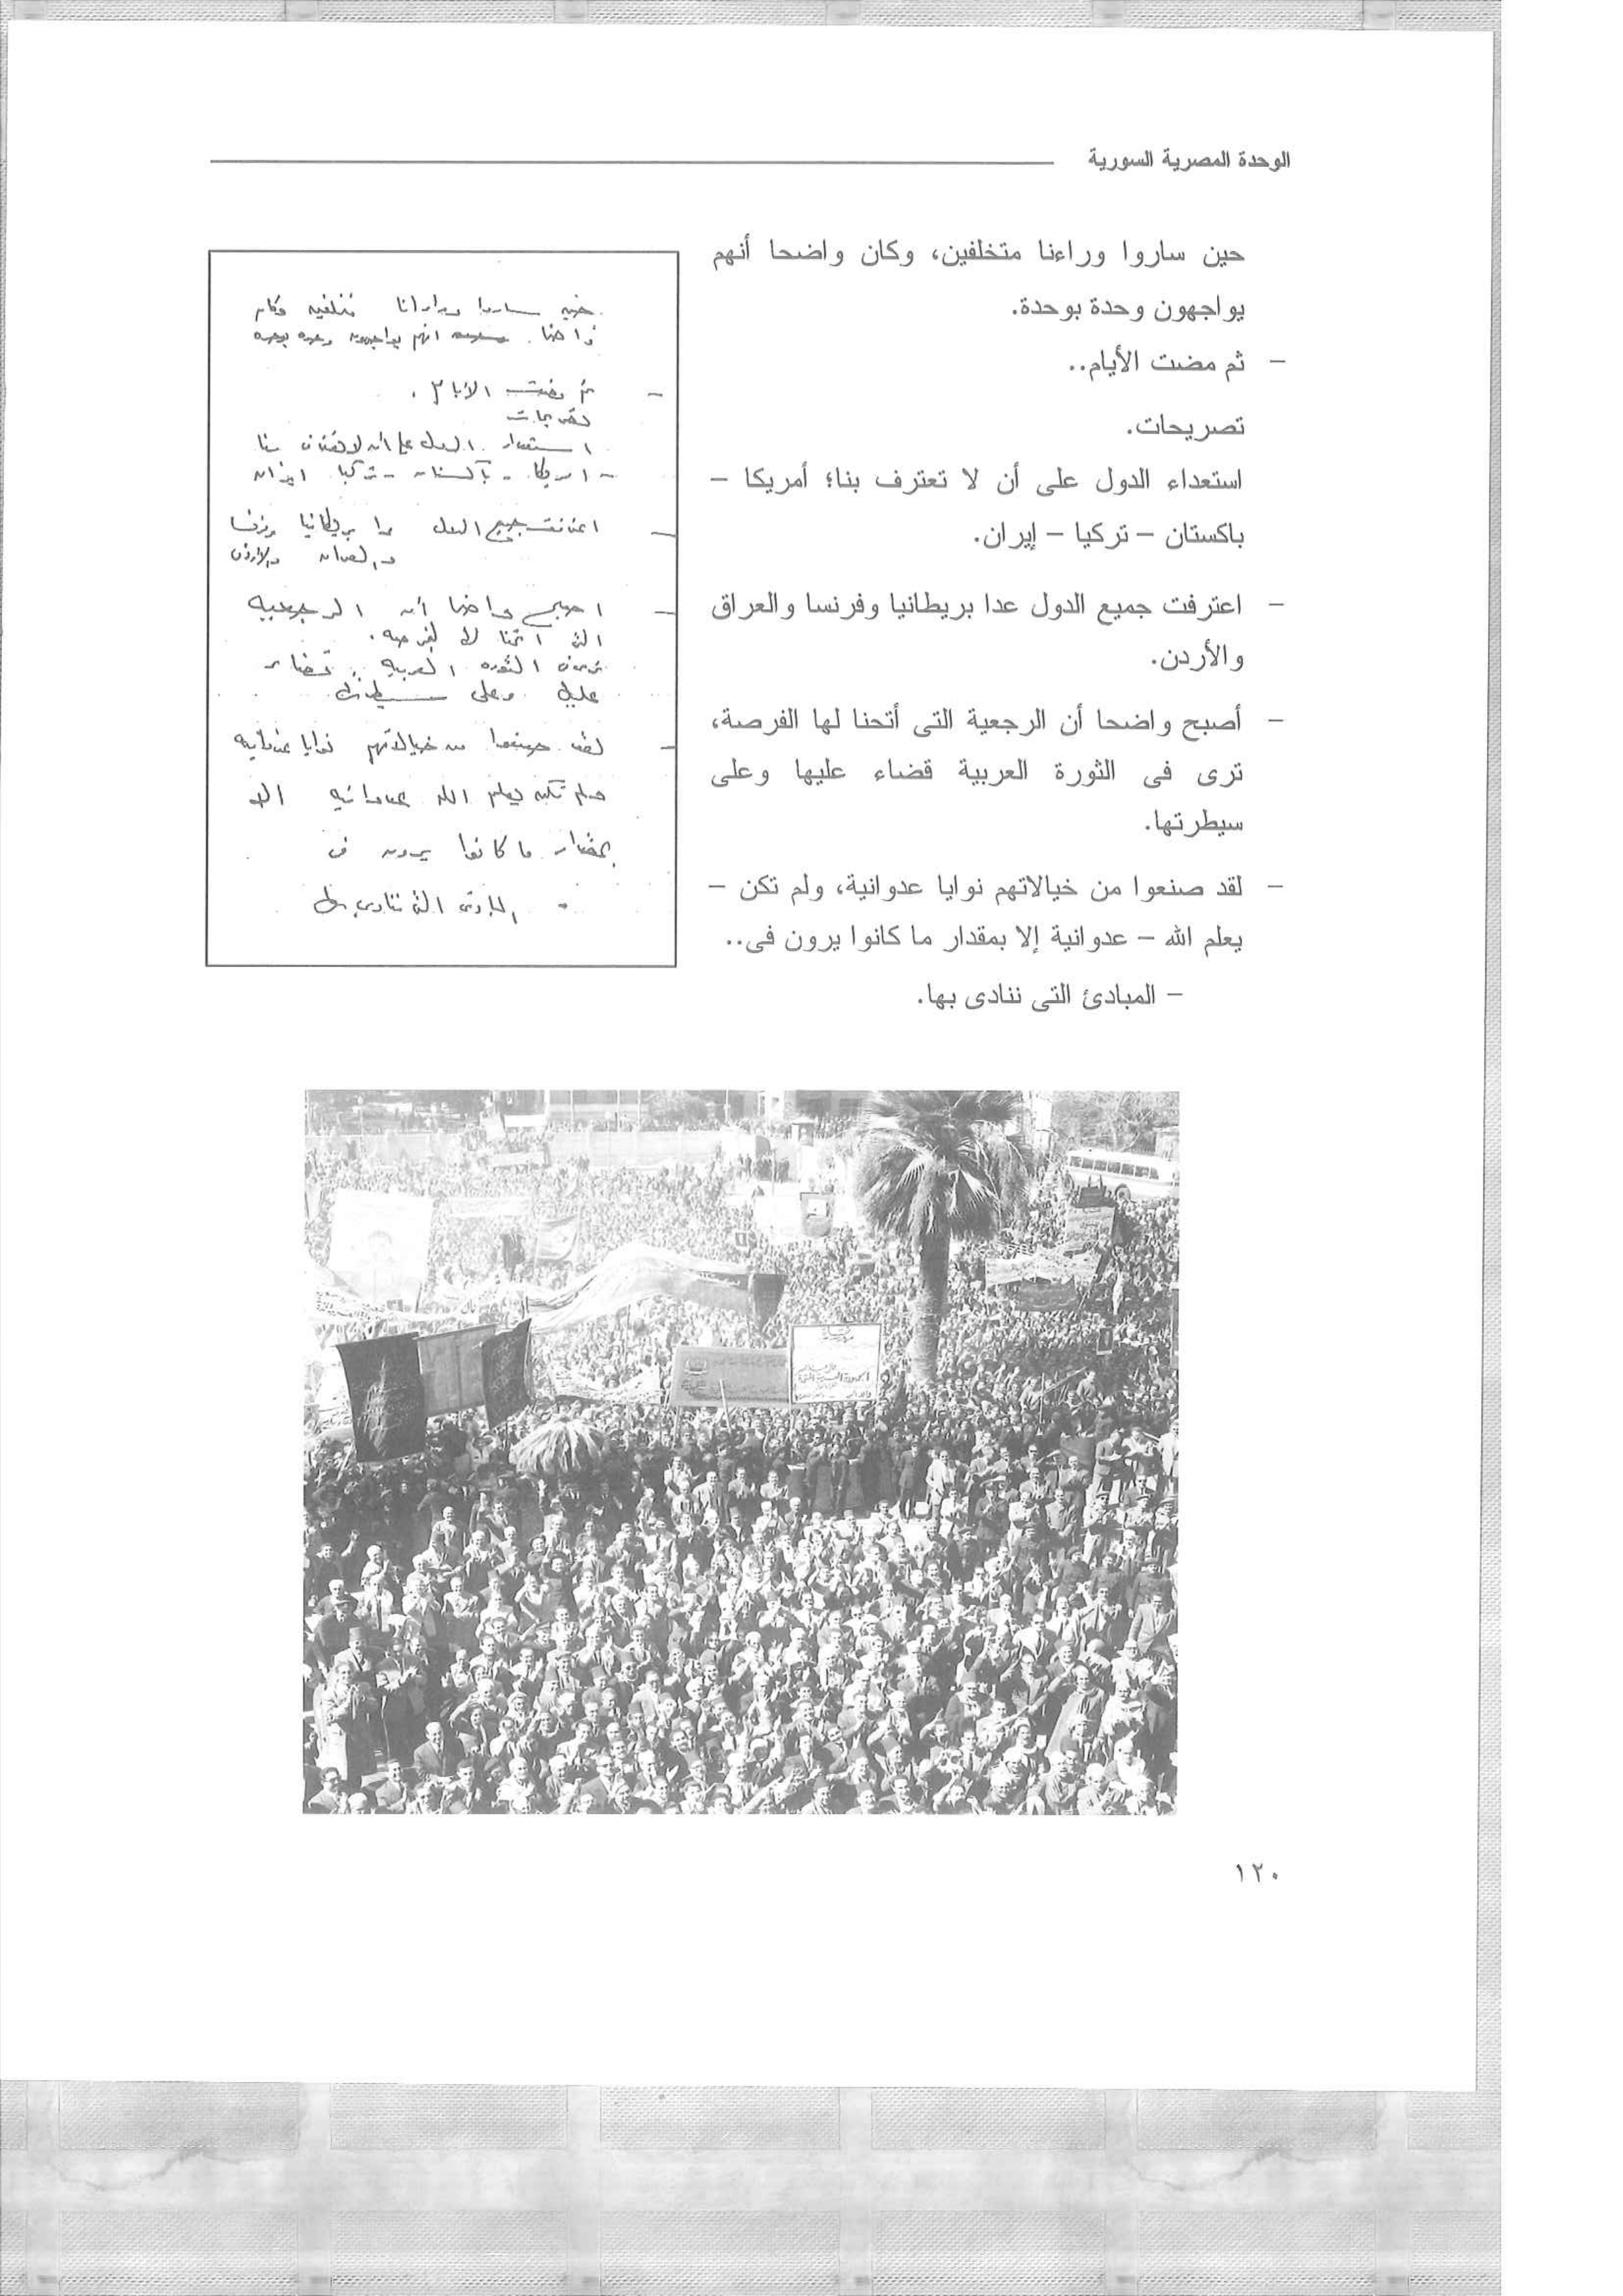 الوحدة المصرية السورية
حين ساروا وراءنا متخلفين، وكان واضحا أنهم
يواجهون وحدة بوحدة.
- ثم مضت الأيام..
تصريحات.
استعداء الدول على أن لا تعترف بنا؛ أمريكا -
باكستان - تركيا - إيران.
- اعترفت جميع الدول عدا بريطانيا وفرنسا والعراق
والأردن.
- أصبح واضحا أن الرجعية التى أتحنا لها الفرصة،
ترى فى الثورة العربية قضاء عليها وعلى
سيطرتها.
- لقد صنعوا من خيالاتهم نوايا عدوانية، ولم تكن -
يعلم الله - عدوانية إلا بمقدار ما كانوا يرون فى..
- المبادئ التى ننادى بها.
حين ساروا وراءنا متخلفين وكان
واضحا انهم يواجهون وحده بوحده
- ثم مضت الايام .
تصريحات
استعداء الدول على ان لا تعترف بنا
- امريكا - باكستان - تركيا ايران
- اعترفت جميع الدول عدا بريطانيا وفرنسا
والعراق والاردن
- اصبح واضحا أن الرجعيه
التى اتحنا لها الفرصه .
ترى فى الثوره العربيه قضاء
عليها وعلى سيطرتها
- لقد صنعوا من خيالاتهم نوايا عدوانيه
ولم تكن يعلم الله عدوانيه الا
بمقدار ما كانوا يرون فى
المبادئ التى ننادى بها
١٢٠